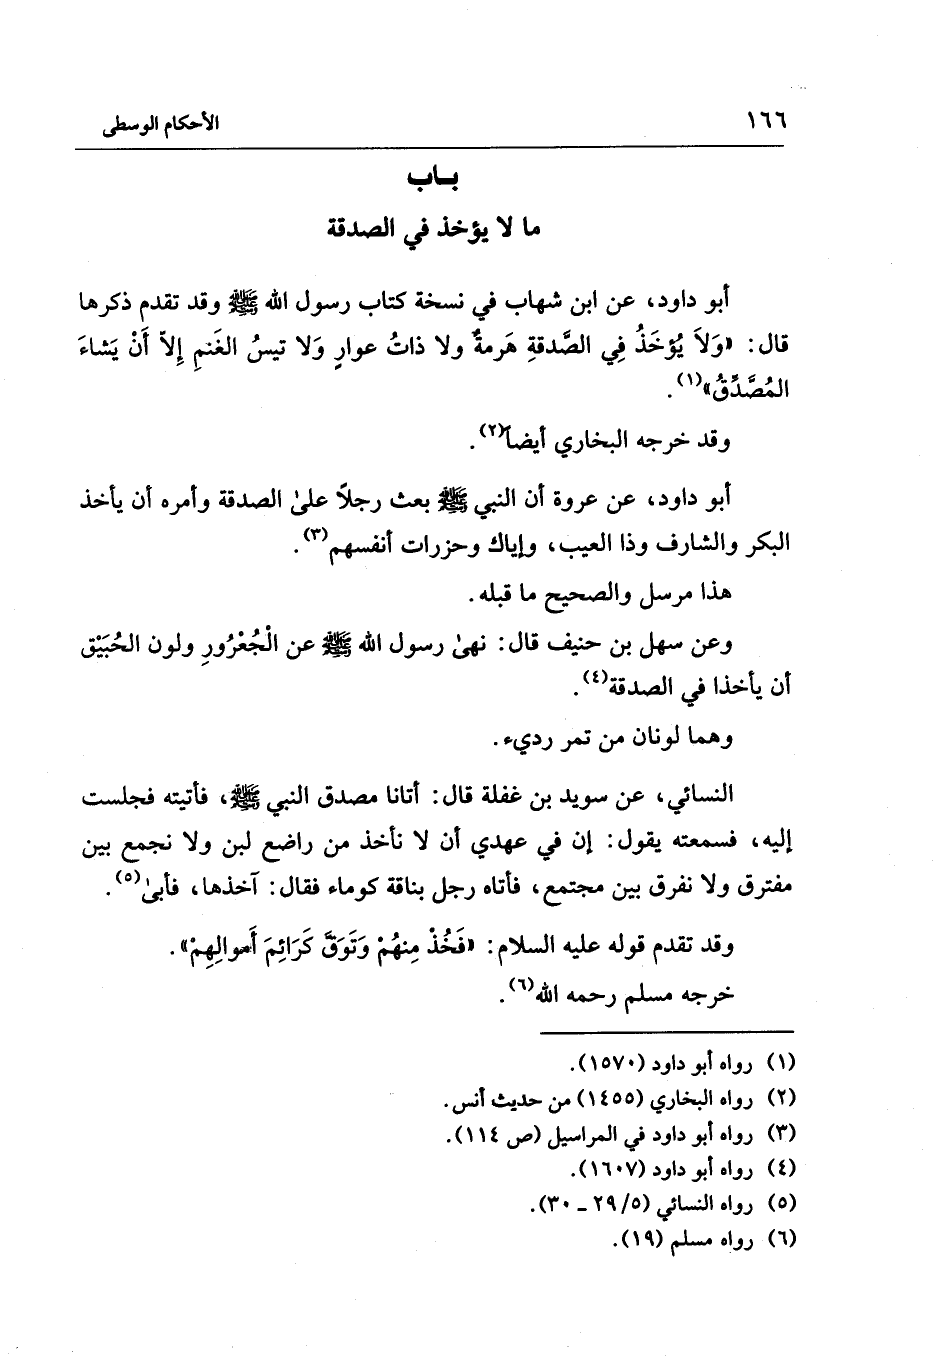 ١٦٦ الأحكام الوسطى
بـاب
ما لا يؤخذ في الصدقة
أبو داود، عن ابن شهاب في نسخة كتاب رسول الله ﷺ وقد تقدم ذكرها
قال: «وَلاَ يُؤْخَذُ فِي الصَّدقةِ هَرمةٌ ولا ذاتُ عوارٍ وَلا تيسُ الغَنمِ إلاّ أَنْ يَشاءَ
المُصَّدِّقُ»(١).
وقد خرجه البخاري أيضاً(٢).
أبو داود، عن عروة أن النبي ﷺ بعث رجلاً علىٰ الصدقة وأمره أن يأخذ
البكر والشارف وذا العيب، وإياك وحزرات أنفسهم(٣).
هذا مرسل والصحيح ما قبله.
وعن سهل بن حنيف قال: نهىٰ رسول الله ﷺ عن الْجُعْرُورِ ولون الحُبَيْق
أن يأخذا في الصدقة(٤).
وهما لونان من تمر رديء.
النسائي، عن سويد بن غفلة قال: أتانا مصدق النبي ﷺ، فأتيته فجلست
إليه، فسمعته يقول: إن في عهدي أن لا نأخذ من راضع لبن ولا نجمع بين
مفترق ولا نفرق بين مجتمع، فأتاه رجل بناقة كوماء فقال: آخذها، فأبىٰ(٥).
وقد تقدم قوله عليه السلام: «فَخُذْ مِنهُمْ وَتَوَقَّ كَرَائِمَ أَموالِهِمْ».
خرجه مسلم رحمه الله(٦).
(١) رواه أبو داود (١٥٧٠).
(٢) رواه البخاري (١٤٥٥) من حديث أنس.
(٣) رواه أبو داود في المراسيل (ص ١١٤).
(٤) رواه أبو داود (١٦٠٧).
(٥) رواه النسائي (٢٩/٥ ـ ٣٠).
(٦) رواه مسلم (١٩).